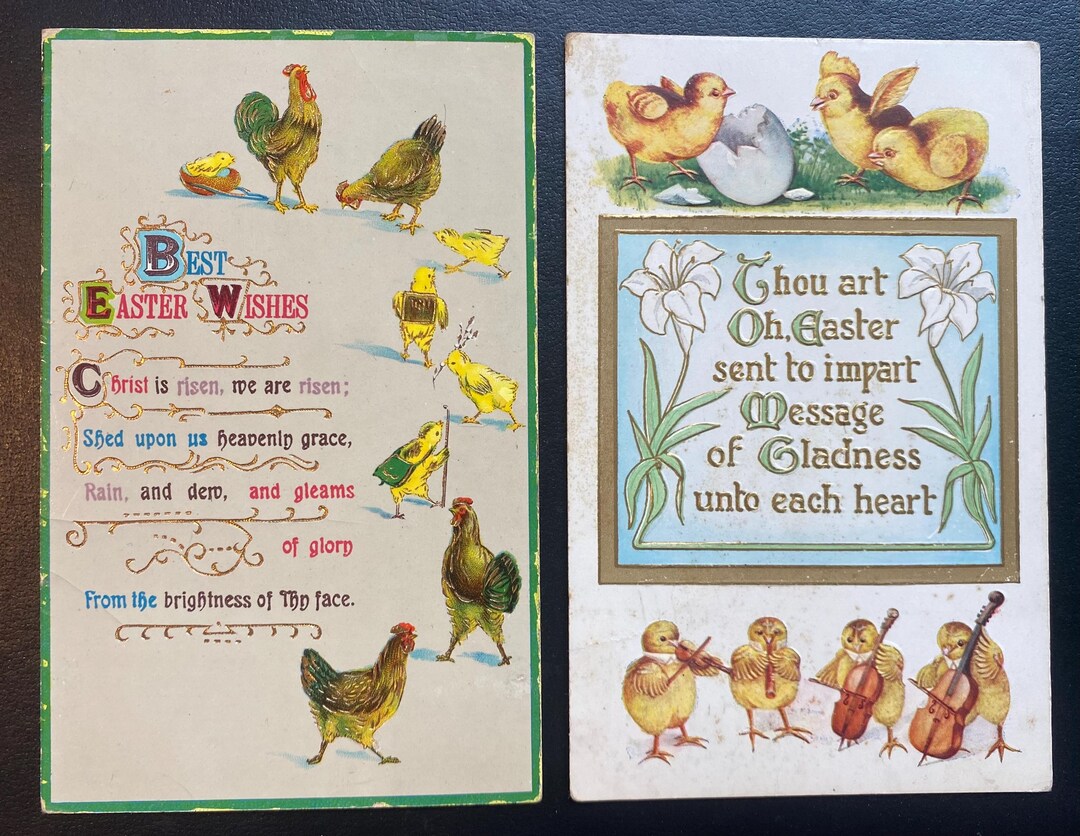 Best
Easter Wishes
Christ is risen, we are risen;
Shed upon us heavenly grace,
Rain, and dew, and gleams
of glory
From the brightness of Thy face.
Thou art
Oh, Easter
sent to impart
Message
of Gladness
unto each heart